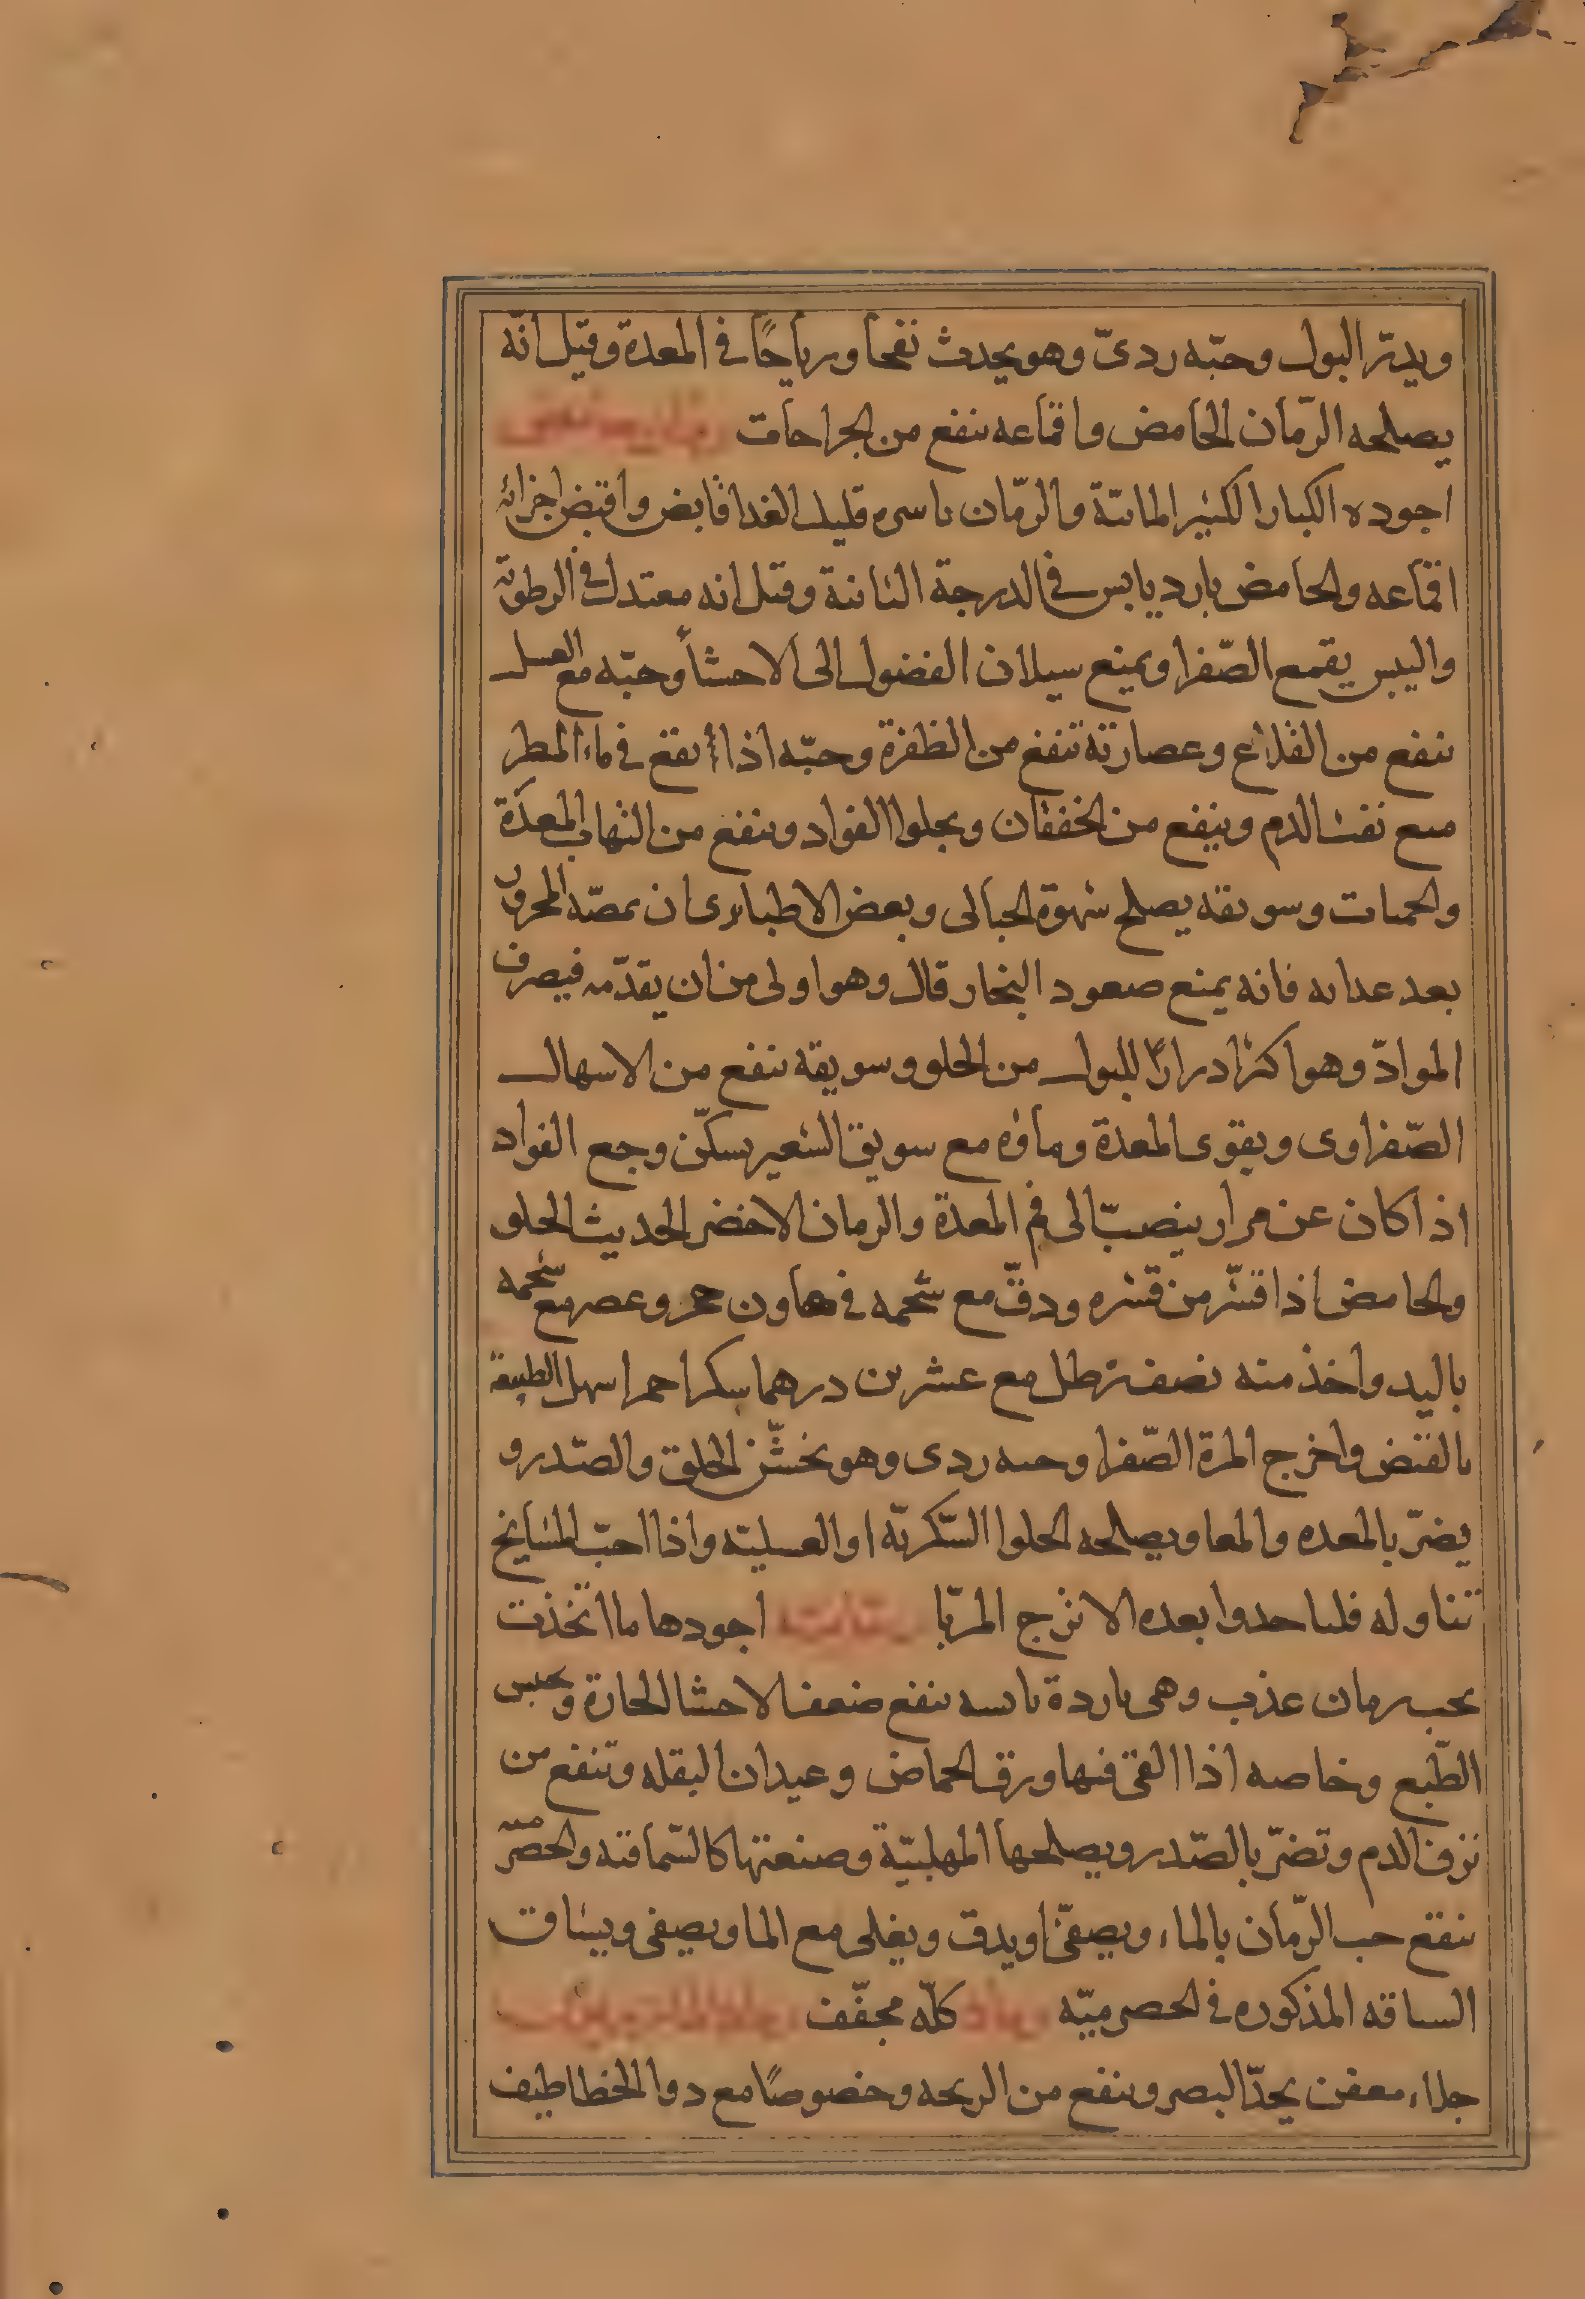 ويدرّ البول وحبّه ردىّ وهو يحدث نفحا ورياحًا فى المعدة وقيل انّه
يصلحه الرّمان الحامض واقماعه ينفع من الجراحات
اجوده الكبار الكثير المائيّة والرّمان باسره قليل الغدا قابض واقبض اجزائه
اقماعه والحامض بارد يابس فى الدرجة الثانية وقيل انه معتدل فى الرطوبة
واليبس يقمع الصّفرا ويمنع سيلان الفضول الى الاحشأ وحبّه مع العسل
ينفع من القلاع وعصارته تنفع من الظفرة وحبّه اذا انقع فى ماء المطر
منع نفث الدم وينفع من الخفقان ويجلوا الفواد وينفع من التهاب المعدة
والحميات وسويقه يصلح شهوة الحبالى وبعض الاطبا يرى ان يمصّه المحرور
بعد غدايه فانه يمنع صعود البخار قال وهو اولى من ان يقدّمه فيصرف
الموادّ وهو اكثر ادرارًا للبول من الحلو وسويقه ينفع من الاسهال
الصّفراوى ويقوى المعدة وماؤه مع سويق الشعير يسكّن وجع الفواد
اذا كان عن مرار ينصبّ الى فم المعدة والرمان الاخضر الحديث الحلو
والحامض اذا قشّر من قشره ودقّ مع شحمه فى هاون حجر وعصر مع شحمه
باليد واخذ منه نصف رطل مع عشرين درهما سكرا احمر اسهل الطبيعة
بالقبض واخرج المرة الصّفرا وحبه ردى وهو يخشّن الحلق والصّدر و
يضرّ بالمعده والمعا ويصلحه الحلوا السّكريّه او العسليّه واذا احبّ المشايخ
تناوله فلياخذوا بعده الاترج المربّا اجودها ما اتّخذت
بحب رمان عذب وهى باردة يابسه ينفع ضعف الاحشا الحارة وتحبس
الطّبع وخاصه اذا القى فيها ورق الحماض وعيدان البقله وتنفع من
نزف الدم وتضرّ بالصّدر ويصلحها المهلبيّة وصنعتها كالسّماقيه والحصرميه
ينقع حب الرّمان بالماء ويصفّى او يدق ويغلى مع الما ويصفى ويساق
السياقه المذكوره فى الحصرميّه رماد كلّه مجفّف
جلاء معفن يحدّ البصر وينفع من الريحه وخصوصًا مع دوا الخطاطيف